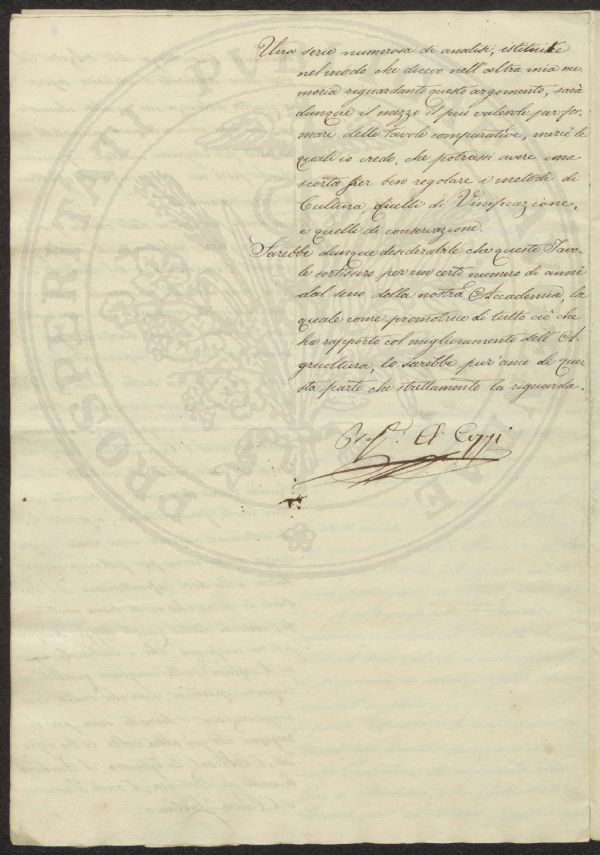 Una serie numerosa di analisi, istituite
nel modo che dicevo nell'altra mia me-
moria riguardante questo argomento, sarà
dunque il mezzo il più valevole per for-
mare delle tavole comparative, mercè le
quali io credo, che potrassi avere una
scorta per ben regolare i metodi di
Cultura, quelli di Vinificazione,
e quelli di conservazione.
Sarebbe dunque desiderabile che queste Tavo-
le sortissero per un certo numero di anni
dal seno della nostra Accademia, la
quale come promotrice di tutto ciò che
ha rapporto col miglioramento dell'A-
gricoltura, lo sarebbe pur anco di que-
sta parte che strettamente la riguarda.
A. Cozzi